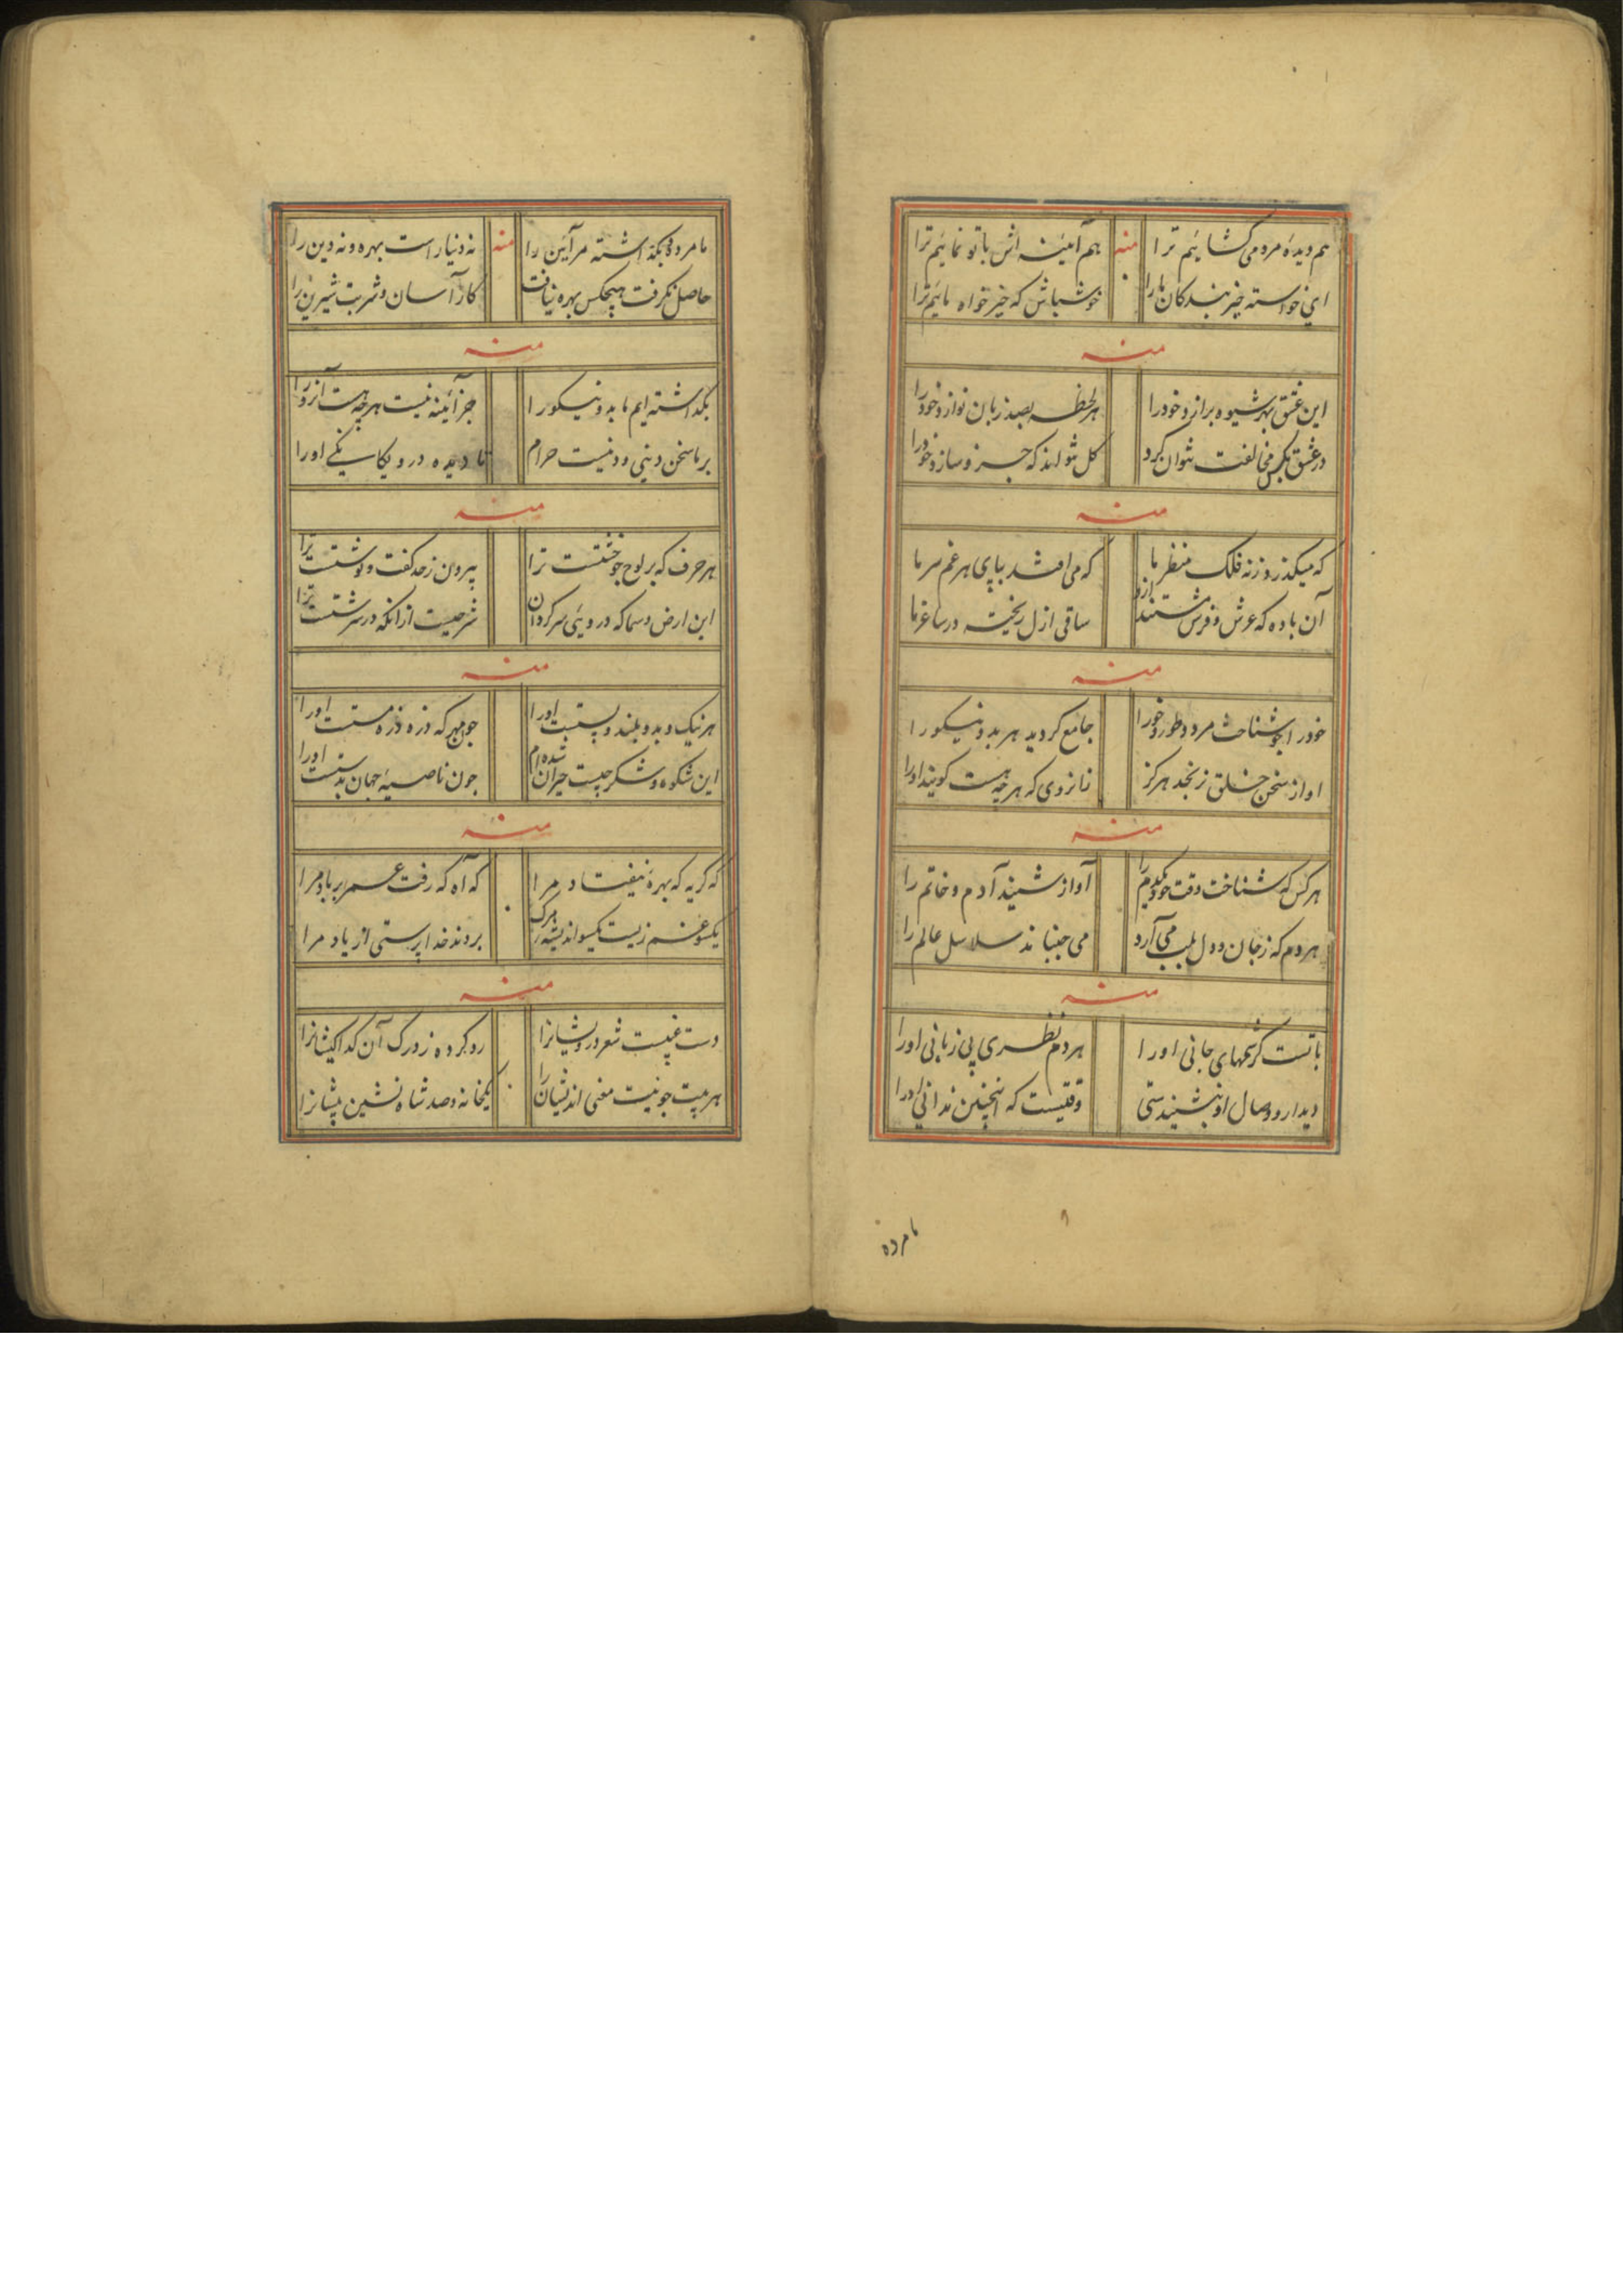 هم دیده مردمی کشائیم ترا منه هم آئینه اش باتو نمائیم ترا
ای خواسته خیر بندکان ما را خوشباش که خیر خواه مائیم ترا
منه
این عشق بهر شیوه برازد خود را هر لحظه بصد زبان نوازد خود را
در عشق بکس مخالفت نتوان کرد کل شو لند که جز و سازد خود را
منه
که میکذرد ز نه فلک منظر ما که می افتد بپای هر غم سر ما
آن باده که عرش و فرش مستند ازو ساقی ازل ریخته در ساغر ما
منه
خود را جو شناخت مرد و طور و خو را جامع کردید هر بد و نیکو را
او از سخن خلق نرنجد هرکز زانروی که هر چه هست کویند او را
منه
هر کس که شناخت وقت خود یکدم را آواز شنید آدم و خاتم را
هر دم که ز جان و دل بلب می آرد می جنباند سلاسل عالم را
منه
باتست کرشمهای جانی او را هر دم نظری پی زبانی او را
دیدار و وصال او نشیندستی وقتیست که اینچنین ندانی او را
نامرده
ما مرد و بکذاشته مر آئین را منه نه دنیا راست بهره و نه دین را
حاصل نکرفت هیچکس بهره نیافت کار آسان و شربت شیرین را
منه
بکذاشته ایم ما بد و نیکو را جز آئینه نیست هر چه هست آنرو را
بر ما سخن دینی و دنییست حرام تا دیده درو یکا یکی او را
منه
هر حرف که بر لوح جو خشتست ترا بیرون ز حد کفت و نوشتست ترا
این ارض و سما که در ویی سرکردان شرحیست از انکه در سرشتست ترا
منه
هر نیک و بد و بلند و پستست او را جون مهر که ذره ذره مستست او را
این شکوه و شکر چیست حیران شده ام جون ناصیه جهان بدستست او را
منه
که کریه که بهره نیفتاد مرا که آه که رفت عمر بر باد مرا
یکسو غم زیست یکسو اندیشه مرک بردند خدا پرستی از یاد مرا
منه
دست غیبست شعر درویشانرا رو کرده ز ورک آن کدا کیشانرا
هر بیت جو نیست معنی اندیشان را یکخانه و صد شاه نشین پیشانرا